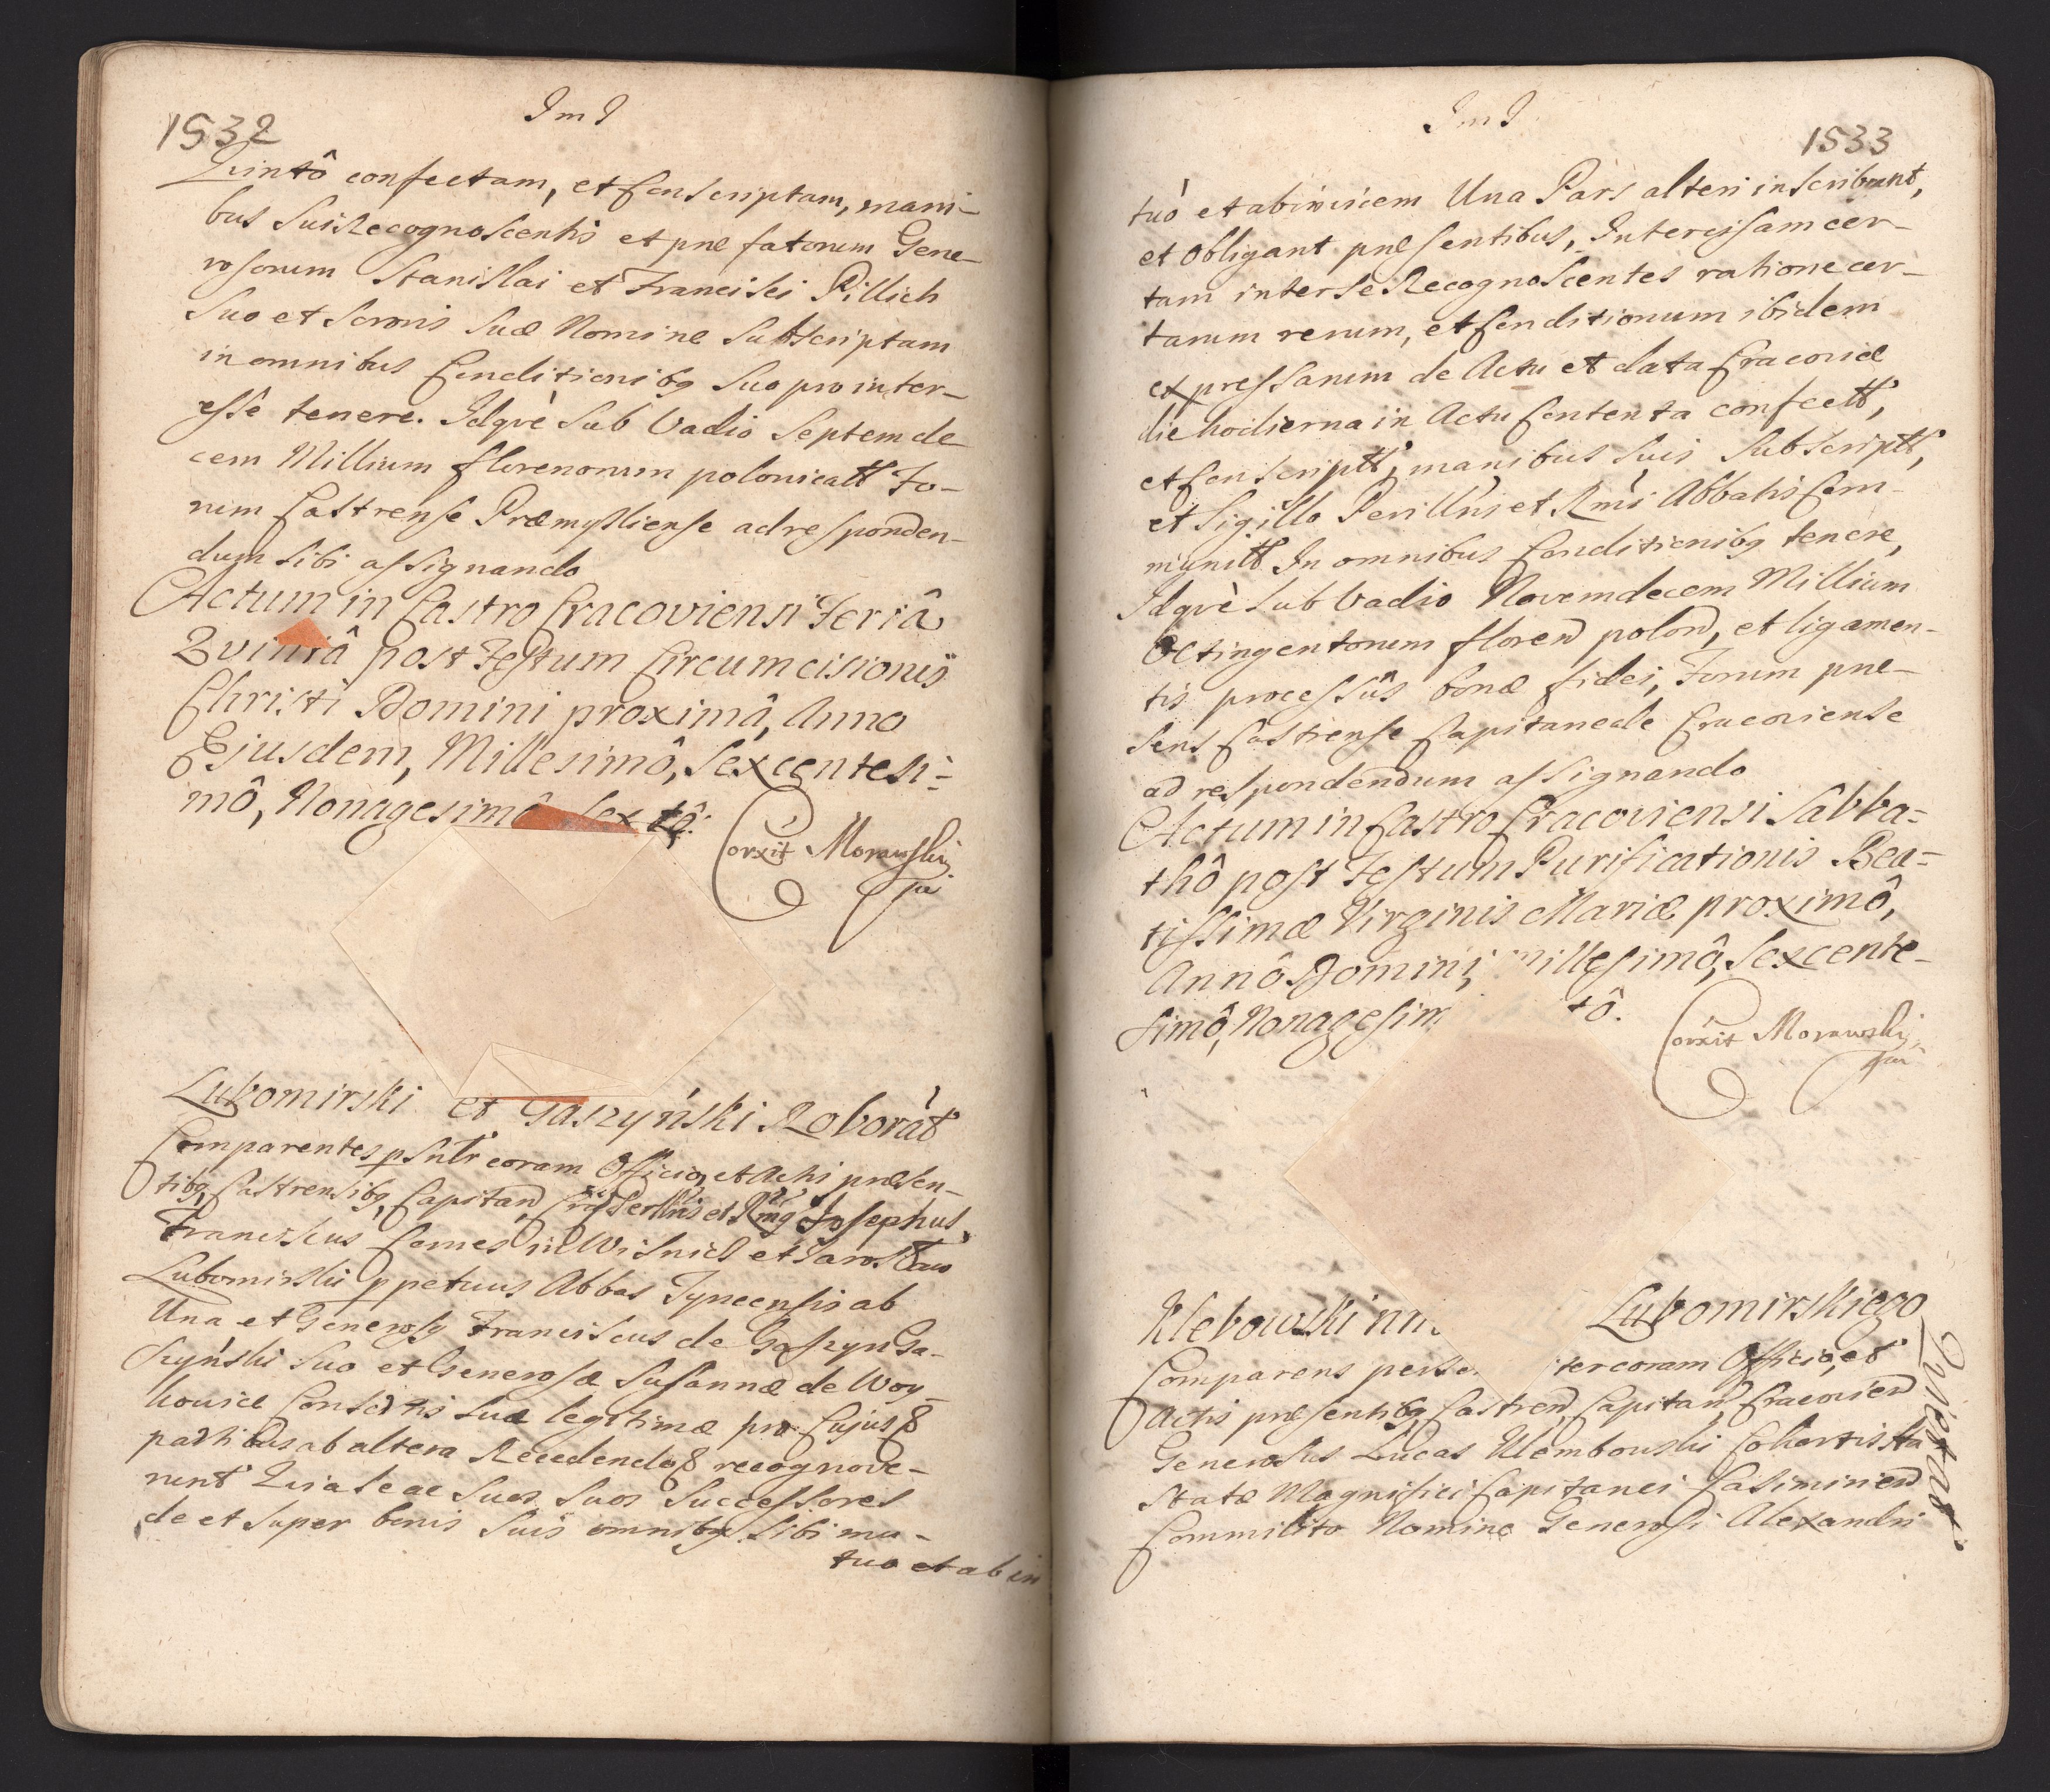 1532
JmJ
Quintô confectam, et Conscriptam, mani-
bus Sui Recognoscentis et præfatorum Gene-
rosorum Stanislai et Francisci Pillich
Suo et Sororis Suæ Nomine Subscriptam
in omnibus Conditionibq Suo pro inter-
esse tenere. Idqvè Sub Vadio Septemde-
cem Millium florenorum polonicalt Fo-
rum Castrense Præmysliense ad responden-
dum Sibi assignando
Actum in Castro Cracoviensi Feriâ
Qvintâ post Festum Circumcisionis
Christi Domini proximâ, Anno
Ejusdem, Millesimô, Sexcentesi-
mô, Nonagesimô Sextô.
Corxit Morawski
Lubomirski et Gaszyński Roborat
Comparentes psnltr coram Officio, et Actis præsen-
tibq, Castrensibq, Capitan Josephus
Franciscus Comes in Wisnicz et Jarosław
Lubomirski ppetuus Abbas Tyncensis ab
Una et Generosq Franciscus de Gaszyn Ga-
szyński Suo et Generosæ Susannæ de Woy-
Consortis Suæ legitimæ pro Cujus
partibus ab altera Recedendo recognove-
runt Quia Se ac Suos Suos Successores
de et Super bonis Suis omnibq Sibi mu-
tuo et ab in
JmJ
1533
tuò et abinvicem Una Pars alteri inscribunt,
et Obligant præsentibus, Intercisam cer-
tam inter Se Recognoscentes ratione cer-
tarum rerum, et Conditionum ibidem
expressarum de Actu et data Cracoviæ
die hodierna in Actu Contenta confectt,
et Conscriptt, manibus Suis Subscriptt,
et Sigillo Perillris et Rmi Abbatis Com-
munitt In omnibus Conditionibq tenere,
Idqvè Sub Vadio Novemdecem Millium
Octingentorum floren polon, et ligamen-
tis processûs bonæ fidei, Forum præ-
sens Castrense Capitaneale Cracoviense
ad respondendum assignando
Actum in Castro Cracoviensi Sabba-
thô post Festum Purificationis Bea-
tissimæ Virginis Mariæ proximô,
Annô Domini, Millesimô, Sexcente-
simô, Nonagesim tô.
Corxit Morawski
Klebowski Lubomirskiego
Qvietat
Comparens perso ter coram Officio, et
Actis præsentibq, Castren, Capitan, Cracovien
Generosus Lucas Klembowski Cohortis Ha-
statæ Magnifici Capitanei Casimirien
Commilito Nomine Generosi Alexandri